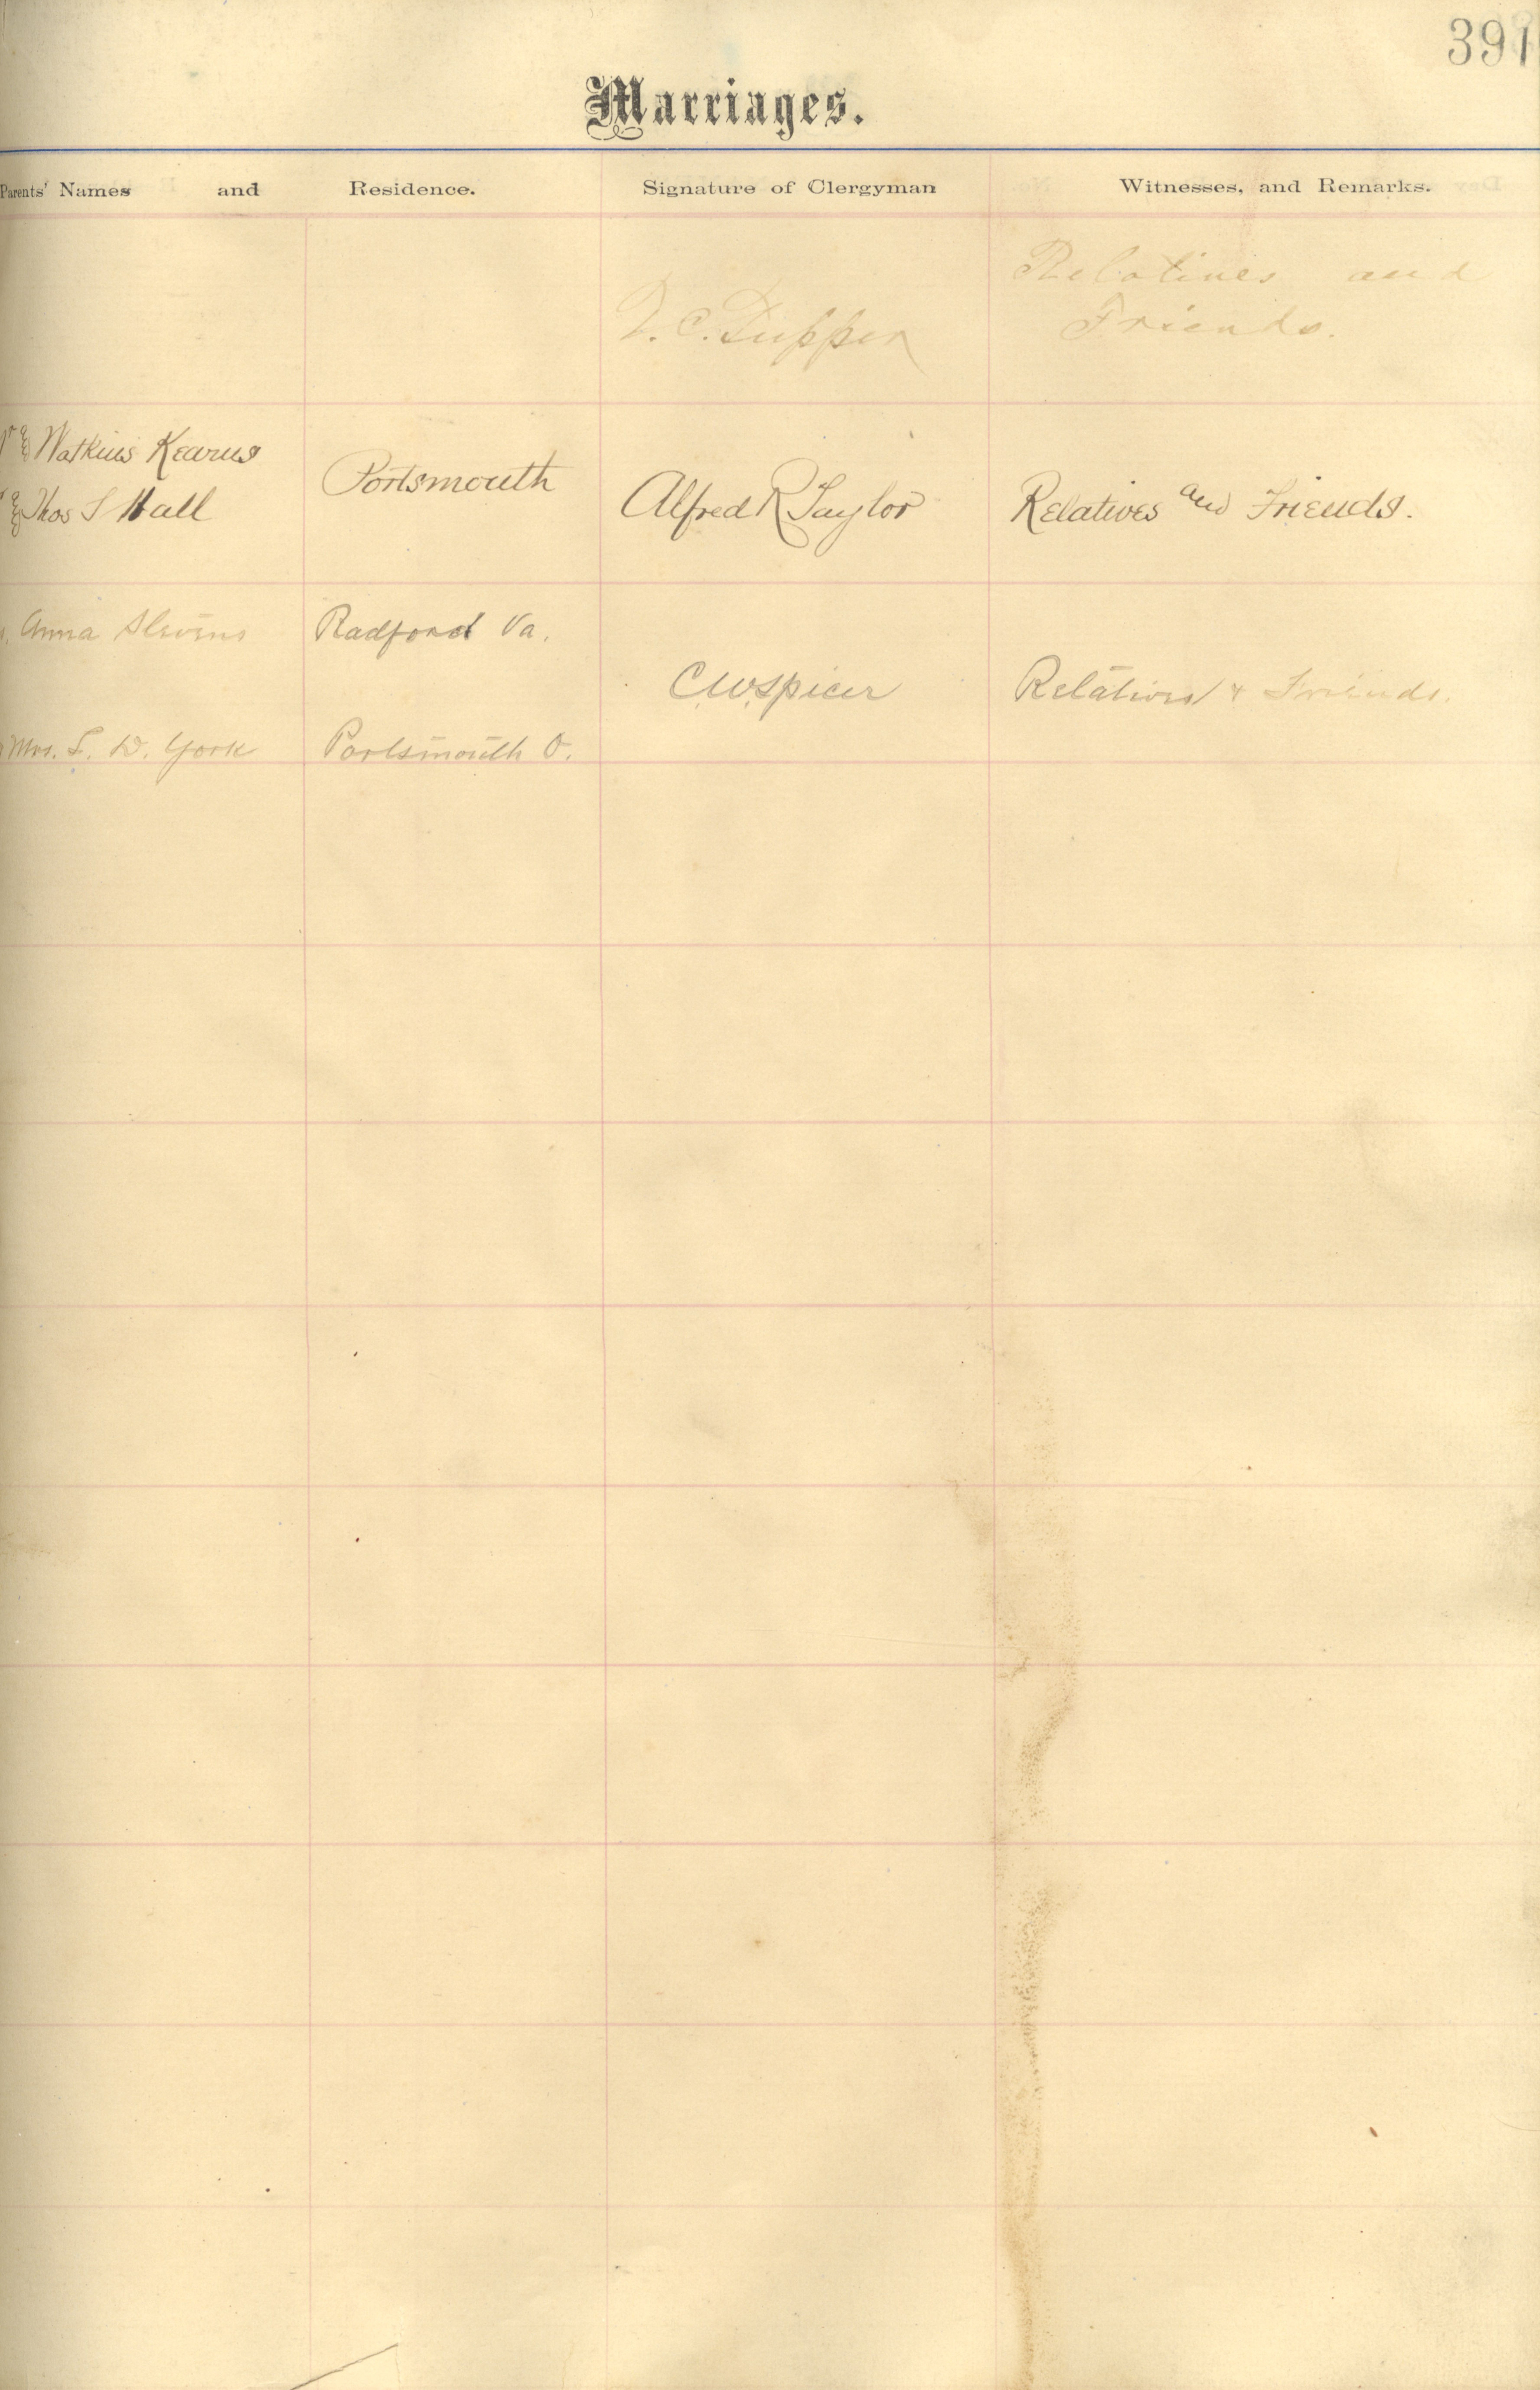 391
Marriages.
Parents' Names and Residence. Signature of Clergyman Witnesses, and Remarks.
Relatives and
Friends.
Watkins Kearns
Thos S Hall
Portsmouth
Alfred R Taylor
Relatives and Friends.
Anna Stevens
Radford Va.
C.W. Spicer
Relatives & Friends.
Mrs. S. W. York
Portsmouth O.